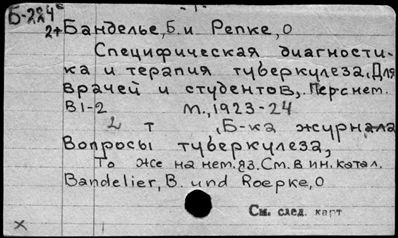 Б-224
2+ Банделье, Б. и Репке, О
Специфическая диагности-
ка и терапия туберкулеза. Для
врачей и студентов,. Перс нем.
В 1-2 М., 1923-24
2 т , Б-ка журнала
Вопросы туберкулеза,
То же на нем. яз. См. в ин. катал.
Bandelier, B. und Roepke, O
См. след. карт
x